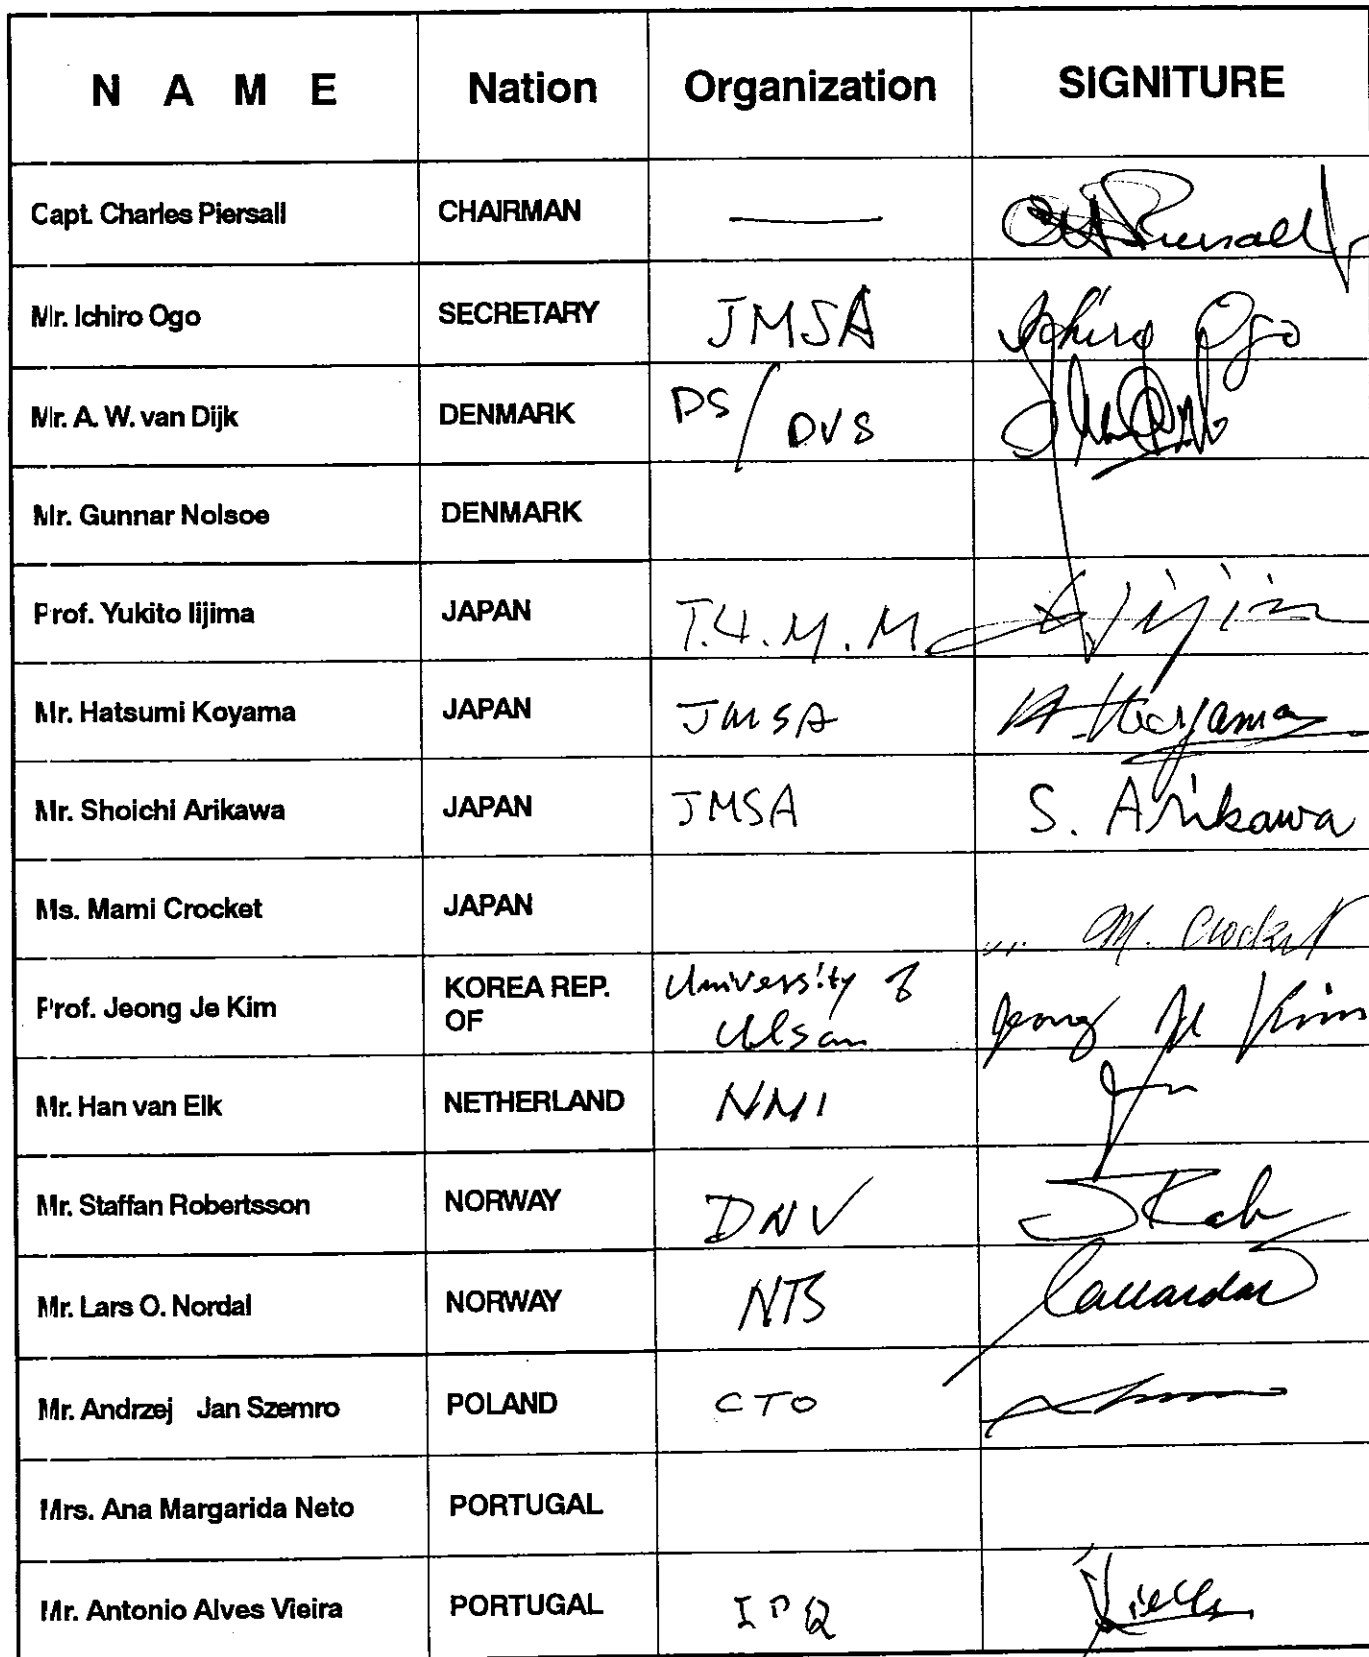 N A M E Nation Organization SIGNITURE
Capt. Charles Piersall CHAIRMAN
Mr. Ichiro Ogo SECRETARY JMSA Ichiro Ogo
Mr. A. W. van Dijk DENMARK DS/DVS
Mr. Gunnar Nolsoe DENMARK
Prof. Yukito Iijima JAPAN Iijima
Mr. Hatsumi Koyama JAPAN JMSA H. Koyama
Mr. Shoichi Arikawa JAPAN JMSA S. Arikawa
Ms. Mami Crocket JAPAN M. Crocket
Prof. Jeong Je Kim KOREA REP. University of Jeong Je Kim
OF Ulsan
Mr. Han van Elk NETHERLAND NMI
Mr. Staffan Robertsson NORWAY DNV
Mr. Lars O. Nordal NORWAY NTS
Mr. Andrzej Jan Szemro POLAND CTO
Mrs. Ana Margarida Neto PORTUGAL
Mr. Antonio Alves Vieira PORTUGAL IPQ